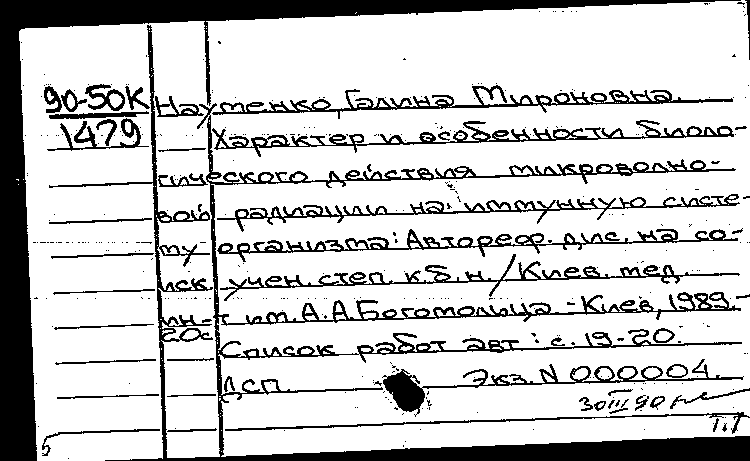 90-50К Наутенко, Галина Мироновна.
1479 Характер и особенности биоло-
гического действия микроволно-
вой радиации на иммунную систе-
му организма: Автореф. дис. на со-
иск. учен. степ. к.б.н. / Киев. мед.
ин-т им. А.А.Богомольца. - Киев, 1989. -
20с
Список работ авт: с. 19-20.
ДСП. Экз. N 000004.
30III90
5